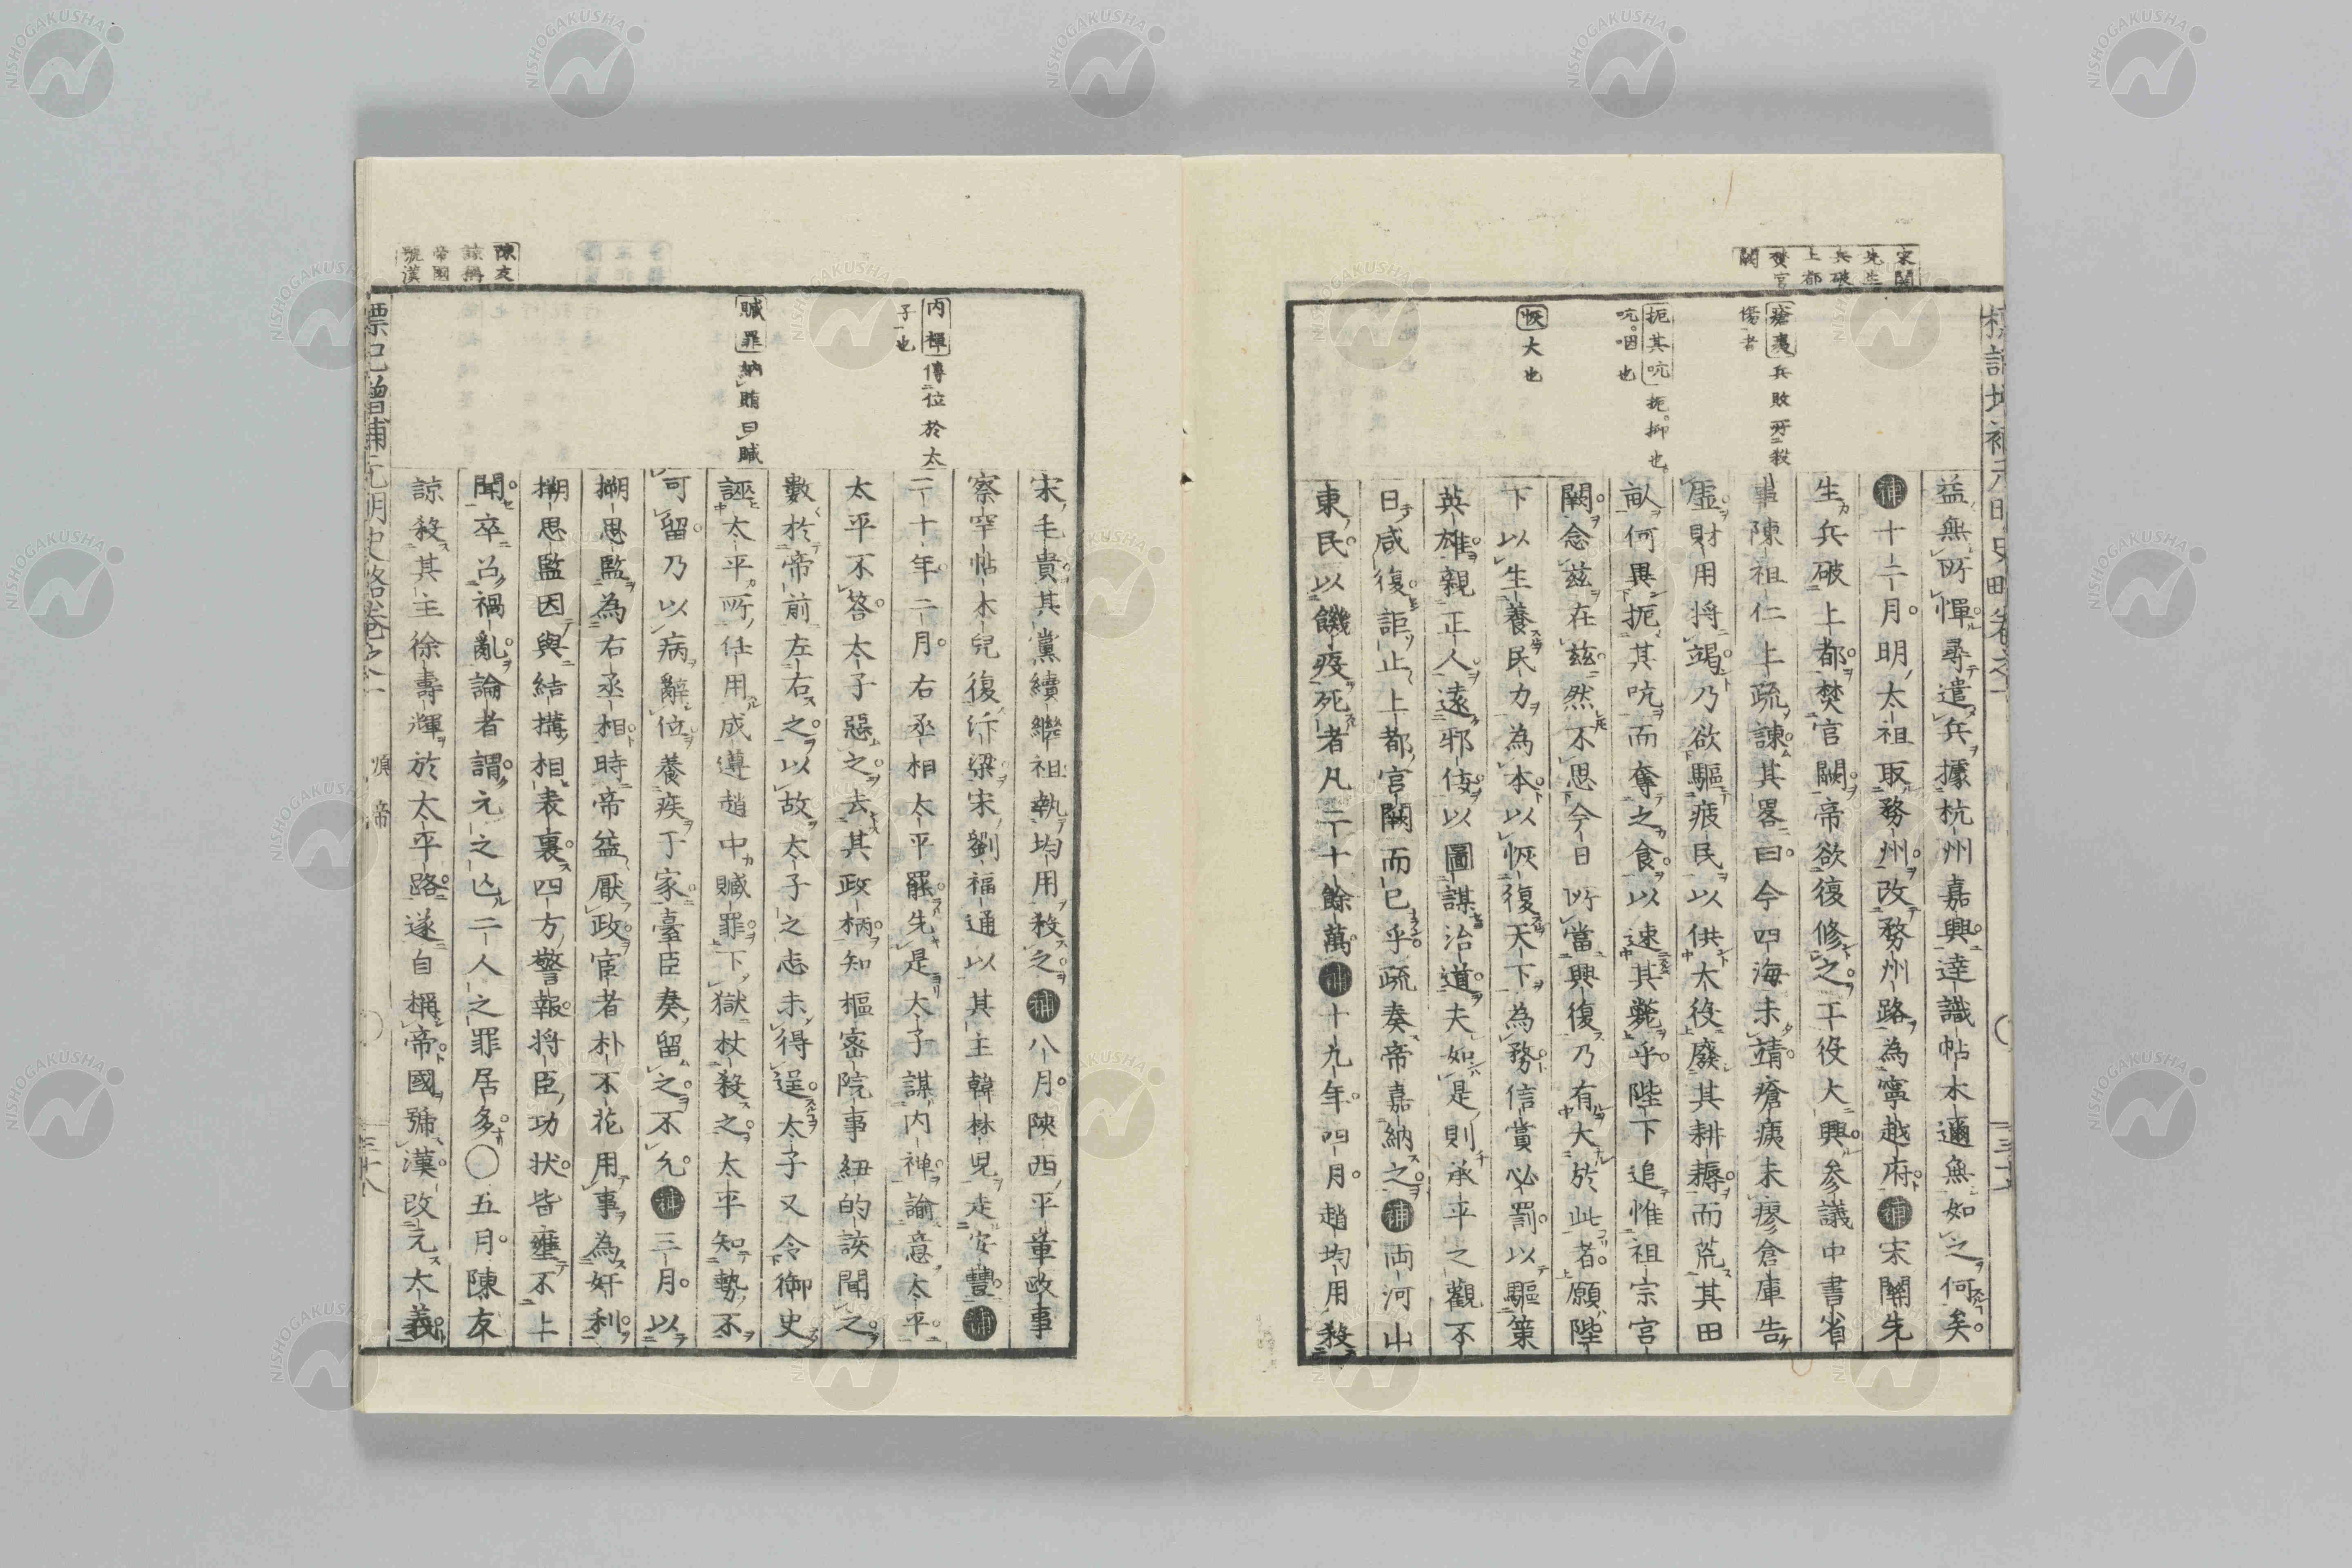 宋關
先生
兵破
上都
焚宮
闕
瘡痍兵敗所殺
傷者
扼其吭扼抑也
吭咽也
恢大也
益無所憚尋遣兵據杭州嘉興達識帖木邇無如之何矣
補十二月明太祖取務州改務州路為寧越府補宋關先
生兵破上都焚宮闕帝欲復修之工役大興參議中書省
事陳祖仁上疏諫其畧曰今四海未靖瘡痍未瘳倉庫告
虛財用将竭乃欲驅疲民以供大役廢其耕耨而荒其田
畝何異扼其吭而奪之食以速其斃乎陛下追惟祖宗宮
闕念茲在茲然不思今日所當興復乃有大於此者願陛
下以生養民力為本以恢復天下為務信賞必罰以驅策
英雄親正人遠邪佞以圖謀治道夫如是則承平之觀不
日咸復詎止上都宮闕而已乎疏奏帝嘉納之補両河山
東民以饑疫死者凡二十餘萬補十九年四月趙均用殺
陳友
諒稱
帝國
號漢
内禪傳位於太
子也
贓罪納賄曰贓
宋毛貴其黨續繼祖執均用殺之補八月陝西平章政事
察罕帖木兒復汴梁宋劉福通以其主韓林兒走安豐補
二十年二月右丞相太平罷先是太子謀内禅諭意太平
太平不答太子惡之去其政柄知樞密院事紐的該聞之
數於帝前左右之以故太子之志未得逞太子又令御史
誣太平所任用成遵趙中贓罪下獄杖殺之太平知勢不
可留乃以病辭位養疾于家臺臣奏留之不允補三月以
搠思監為右丞相時帝益厭政宦者朴不花用事為奸利
搠思監因與結搆相表裏四方警報将臣功状皆壅不上
聞卒召禍亂論者謂元之亡二人之罪居多〇五月陳友
諒殺其主徐壽輝於太平路遂自稱帝國號漢改元大義
順帝
三十八